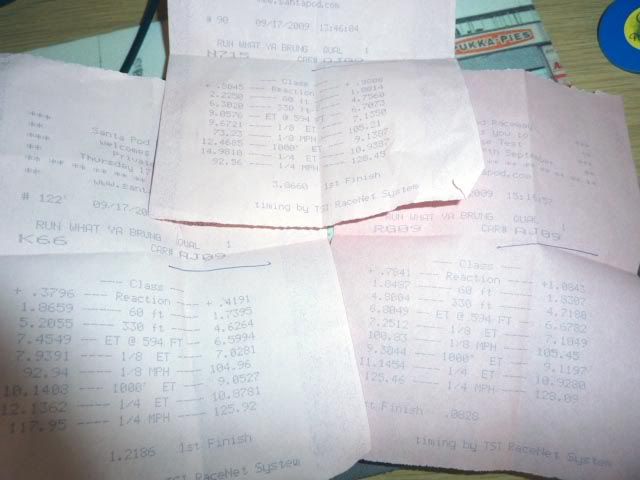 .santapod.com
# 90 09/17/2009 13:46:04
RUN WHAT YA BRUNG QUAL 1
N715 CAR# AJ09
---- Class ----
+ .5045 ---- Reaction ----
2.2250 ---- 60 ft ---- 1.8814
6.3020 ---- 330 ft ---- 4.7560
9.0576 -- ET @ 594 FT -- 6.7073
9.6721 ---- 1/8 ET ---- 7.1350
73.23 ---- 1/8 MPH ---- 105.21
12.4685 ---- 1000' ET ---- 9.1387
14.9810 ---- 1/4 ET ---- 10.9387
92.56 ---- 1/4 MPH ---- 128.45
3.8660 1st Finish
timing by TSI RaceNet System
***
*** Santa Pod
*** Welcomes
*** Privat
Thursday 17
** ** ** ** ** **
www.sant
# 122 09/17/20
RUN WHAT YA BRUNG QUAL 1
K66 CAR# AJ09
---- Class ----
+ .3796 ---- Reaction ---- + .4191
1.8659 ---- 60 ft ---- 1.7395
5.2055 ---- 330 ft ---- 4.6264
7.4549 -- ET @ 594 FT -- 6.5994
7.9391 ---- 1/8 ET ---- 7.0281
92.94 ---- 1/8 MPH ---- 104.96
10.1403 ---- 1000' ET ---- 9.0527
12.1362 ---- 1/4 ET ---- 10.8781
117.95 ---- 1/4 MPH ---- 125.92
1.2186 1st Finish
TSI RaceNet System
d Raceway
you to
e Test
th September
pod.com
2009 15:16:52
RUN WHAT YA BRUNG QUAL 1
RG09 CAR# AJ09
---- Class ----
+ .7841 ---- Reaction ---- +1.0843
1.8487 ---- 60 ft ---- 1.8307
4.8804 ---- 330 ft ---- 4.7188
6.8049 -- ET @ 594 FT -- 6.6782
7.2512 ---- 1/8 ET ---- 7.1049
100.83 ---- 1/8 MPH ---- 105.45
9.3044 ---- 1000' ET ---- 9.1197
11.1454 ---- 1/4 ET ---- 10.9280
125.46 ---- 1/4 MPH ---- 128.09
st Finish .0828
timing by TSI RaceNet System
PUKKA-PIES